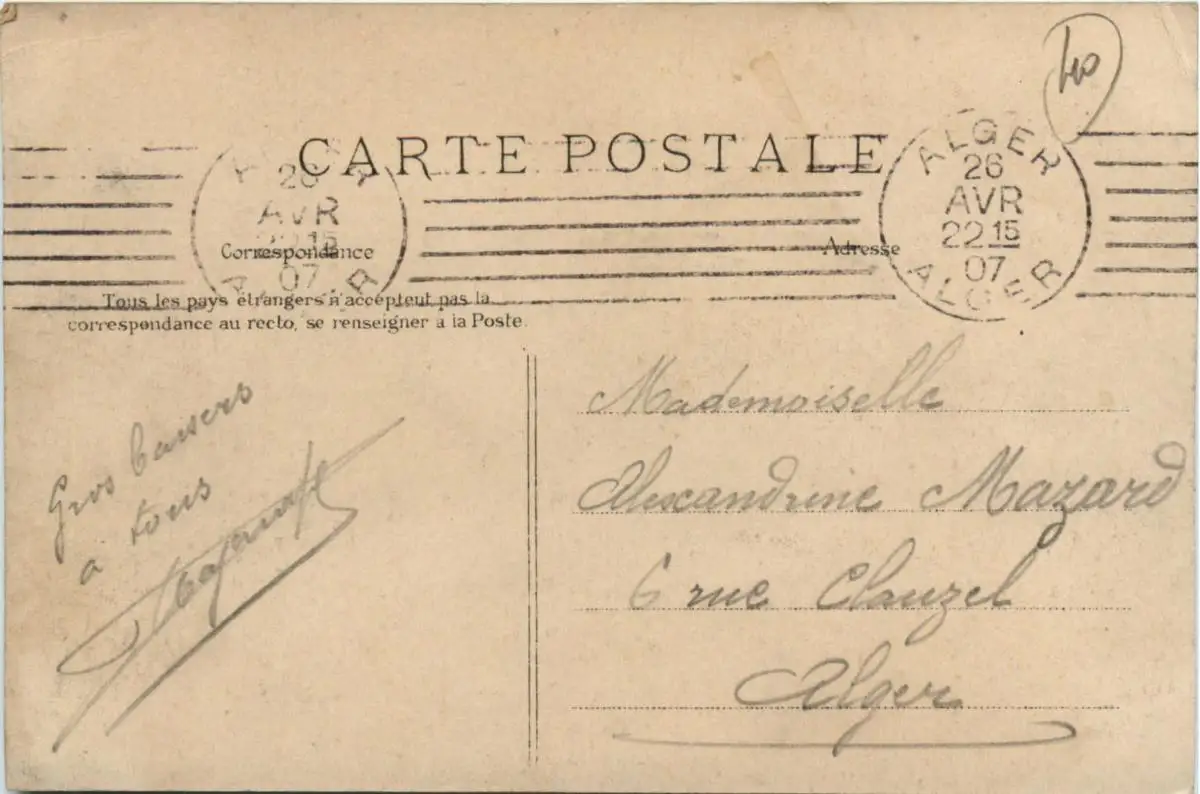 40
CARTE POSTALE
ALGER
26
AVR
22 15
07
ALGER
26
AVR
22 15
07
ALGER
Correspondance
Adresse
Tous les pays étrangers n'acceptent pas la
correspondance au recto, se renseigner à la Poste.
Gros baisers
a tous
Mademoiselle
Alexandrine Mazard
6 rue Clauzel
Alger